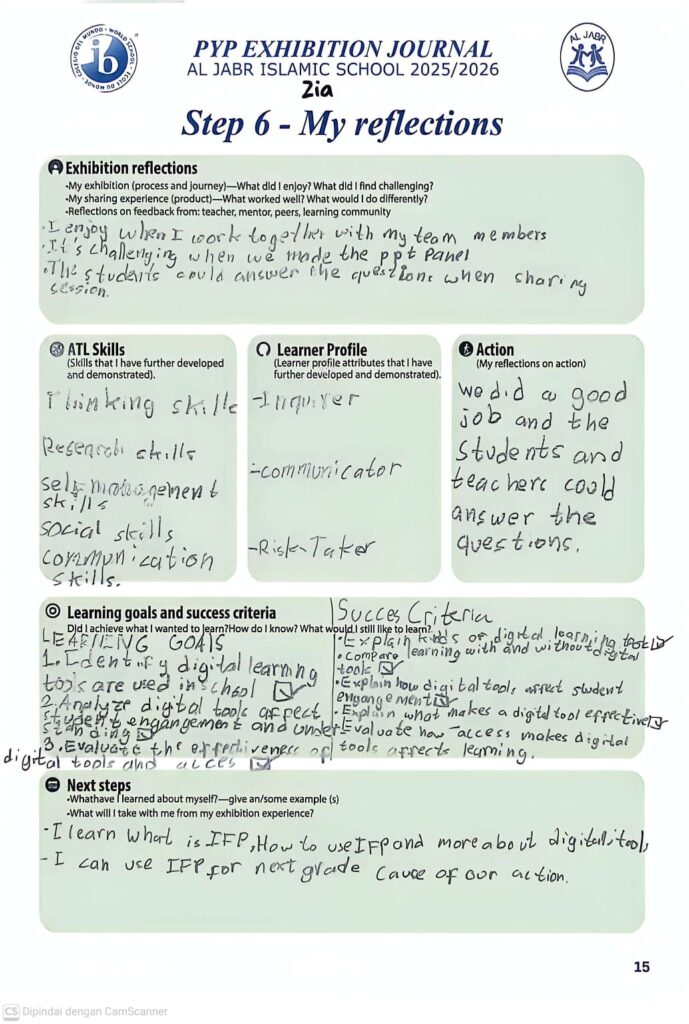 COLEGIO DEL MUNDO · WORLD SCHOOL · ÉCOLE DU MONDE
ib
PYP EXHIBITION JOURNAL
AL JABR ISLAMIC SCHOOL 2025/2026
AL JABR
Zia
Step 6 - My reflections
Exhibition reflections
•My exhibition (process and journey)—What did I enjoy? What did I find challenging?
•My sharing experience (product)—What worked well? What would I do differently?
•Reflections on feedback from: teacher, mentor, peers, learning community
·I enjoy when I work together with my team members
·It's challenging when we made the ppt Panel
·The students could answer the questions when sharing
session.
ATL Skills
(Skills that I have further developed
and demonstrated).
Thinking skills
Research skills
self-management
skills
social skills
communication
skills.
Learner Profile
(Learner profile attributes that I have
further developed and demonstrated).
-Inquirer
-communicator
-Risk-Taker
Action
(My reflections on action)
we did a good
job and the
students and
teachers could
answer the
questions.
Learning goals and success criteria
Did I achieve what I wanted to learn?How do I know? What would I still like to learn?
LEARNING GOALS
1. Identify digital learning
tools are used in school
2. Analyze digital tools affect
student engangement and under
standing
3. Evaluate the effectiveness of
digital tools and acces
Succes Criteria
• Explain kinds of digital learning tools
• Compare learning with and without digital
tools
• Explain how digital tools affect student
engangement
• Explain what makes a digital tool effective
• Evaluate how access makes digital
tools affects learning.
Next steps
•Whathave I learned about myself?—give an/some example (s)
•What will I take with me from my exhibition experience?
- I learn what is IFP, How to use IFP and more about digital tools
- I can use IFP for next grade cause of our action.
15
CS Dipindai dengan CamScanner